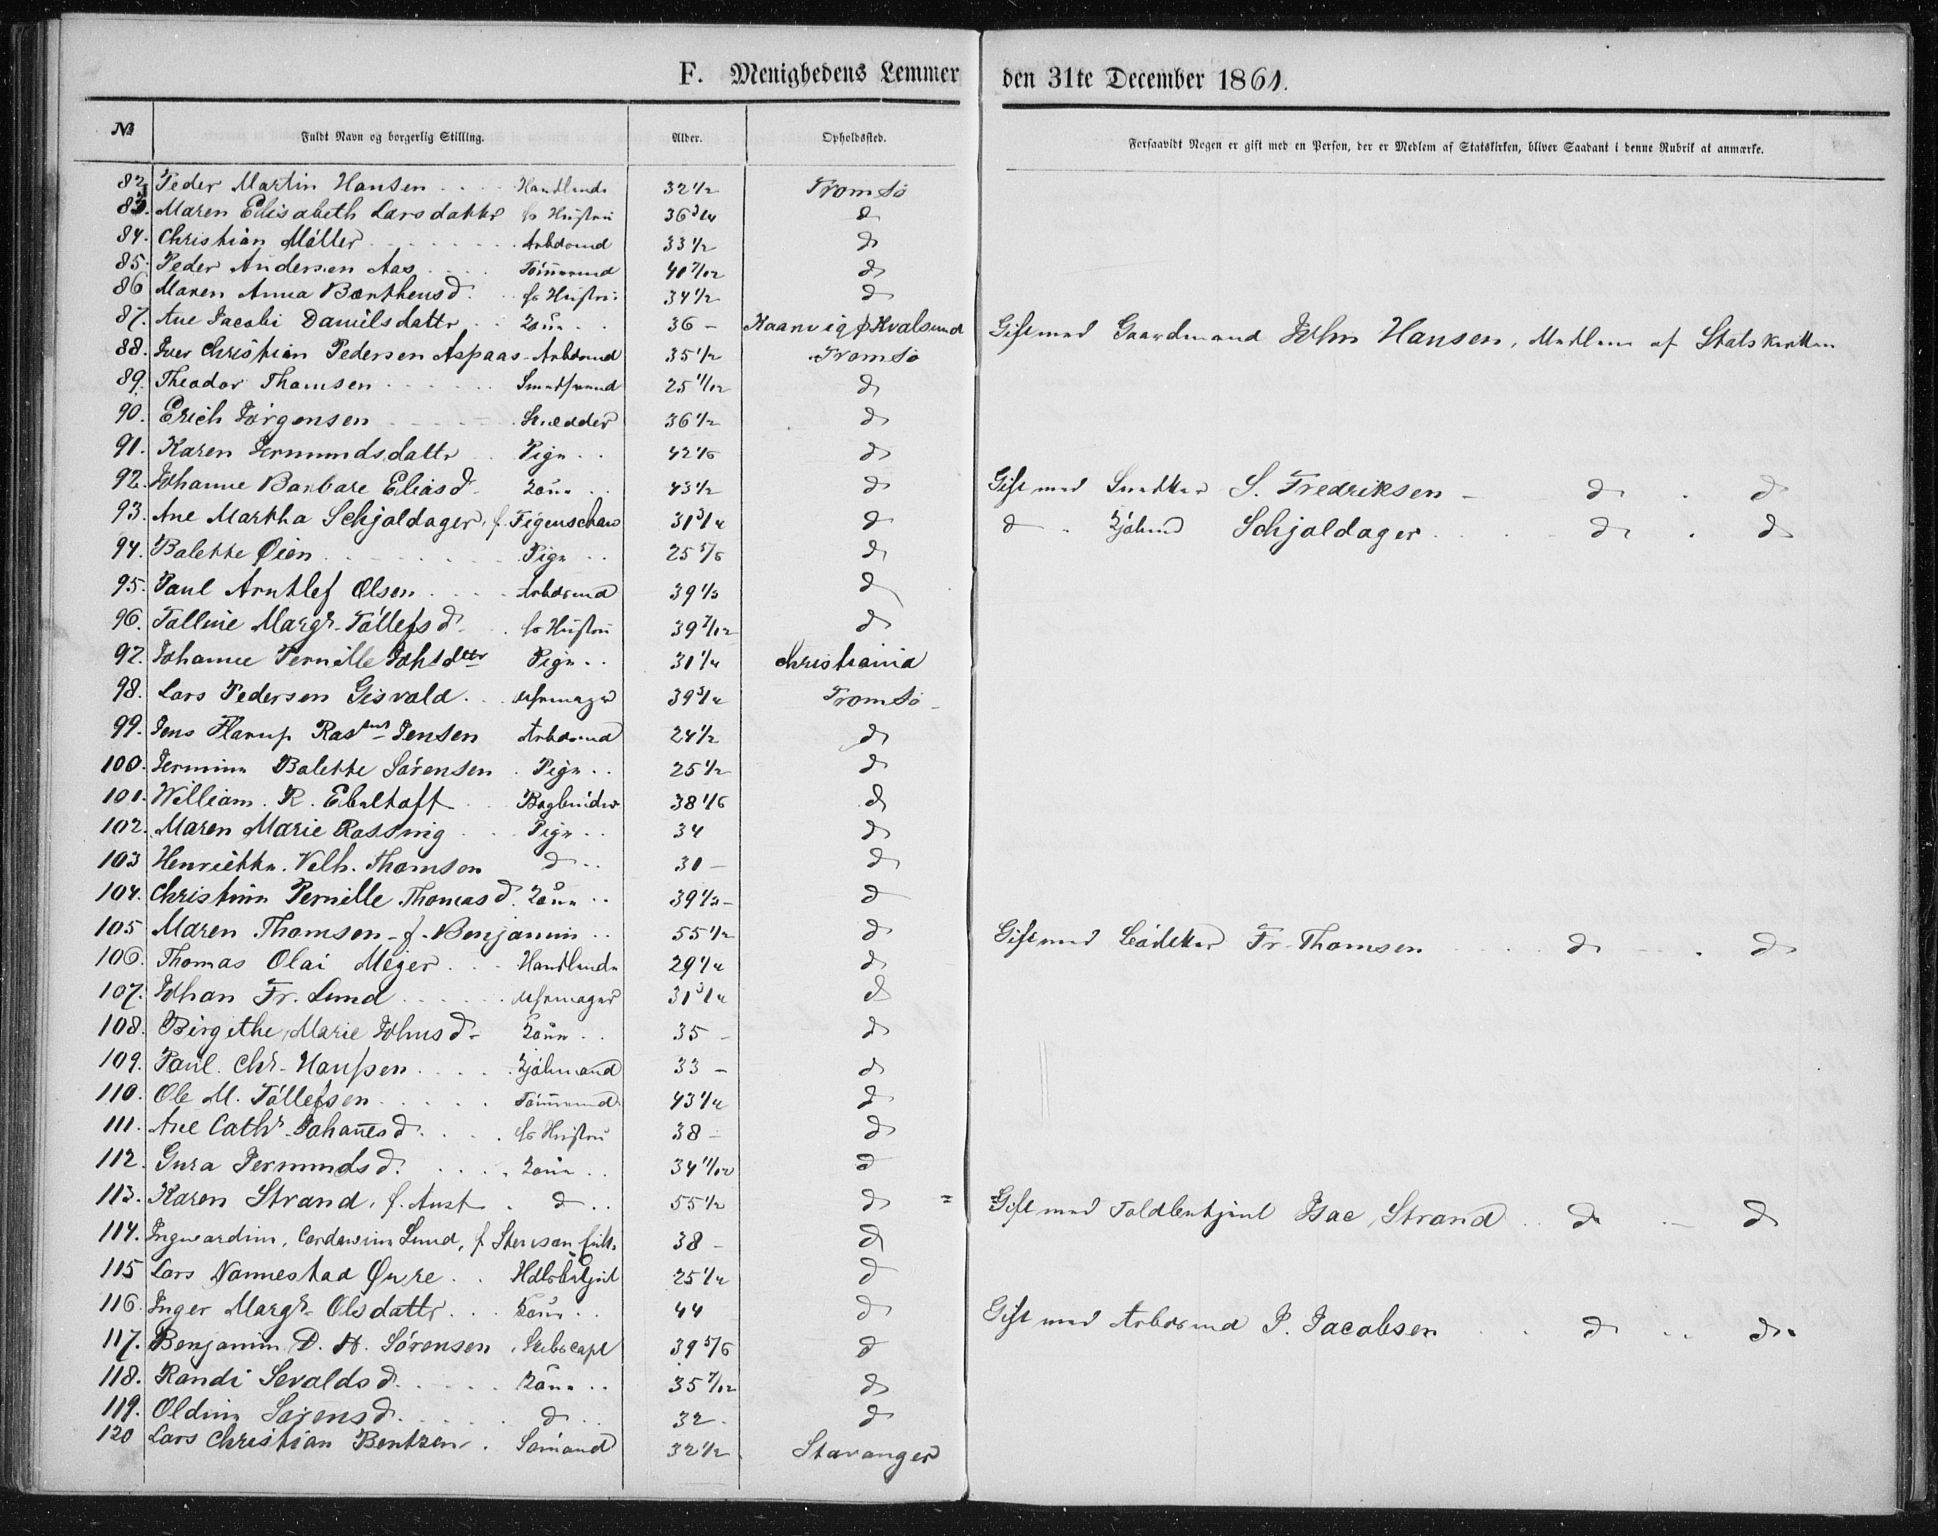 F. Menighedens Lemmer den 31te December 1861.
№ Fuldt Navn og borgerlig Stilling. Alder. Opholdssted. Forsaavidt Nogen er gift med en Person, der er Medlem af Statskirken, bliver Saadant i denne Rubrik at anmærke.
82. Peder Martin Hansen Handlende 32 1/2 Tromsö
83. Maren Elisabeth Larsdatter fs Hustru 36 3/4 d
84. Christian Möller Arbdsmd 33 1/2 d
85. Peder Andersen Aas Tömmermd 40 7/12 d
86 Maren Anna Barthensd. fs Hustru 34 1/2 d
87. Ane Jacobi Danielsdattr Kone 36 - Kaanvig p Kvalsund Gift med Gaardmand John Hansen, Medlem af Statskirken
88. Iver Christian Pedersen Aspaas Arbdsmd 35 1/2 Tromsö
89. Theodor Thomsen Smedsvend 25 11/12 d
90. Erich Jørgensen Skrædder 36 1/2 d
91. Karen Jermundsdattr Pige 42 1/6 d
92. Johanne Barbare Eliasd. Kone 43 1/2 d Gift med Snedker S. Fredriksen - d . d
93. Ane Martha Schjoldager, f. Figenschau 31 3/4 d d . Sjömd Schjoldager d . d
94. Balette Øien Pige 25 5/6 d
95. Paul Arntlef Olsen Arbdsmd 39 1/3 d
96. Talline Margr. Tøllefsd. fs Hustru 39 7/12 d
97. Johanne Pernille Johsdttr Pige 31 1/4 Christiania
98. Lars Pedersen Gisvold Uhrmager 39 3/4 Tromsö
99. Jens Flarup Rasms Jensen Arbdsmd 24 1/2 d
100. Jermine Balette Sørensen Pige 25 1/2 d
101. William R. Ebeltoft Bogbinder 38 1/6 d
102. Maren Marie Rassmig Pige 34 d
103 Henriette Vilh. Thomson d 30 - d
104. Christine Pernille Thomasd. Kone 39 1/3 d
105 Maren Thomsen f. Benjamin 55 1/2 d Gift med Bödker Fr. Thomsen d . d
106. Thomas Olai Mejer Handlende 29 1/4 d
107. Johan Fr. Lund Uhrmager 31 3/4 d
108. Birgithe Marie Johnsd. Kone 35 - d
109. Paul Chr. Hanssen Sjömand 33 - d
110. Ole M. Tøllefsen Tömmermd 43 1/4 d
111. Ane Cathr. Johannesd. fs Hustru 38 - d
112. Gura Jermundsd. Kone 34 11/12 d
113. Karen Strand, f. Aust d 55 1/2 d = = Gift med Toldbetjent Isac Strand d - d
114. Ingvardine, Cordewine Lund, f Stenson 38 - d
115 Lars Nannestad Øwre Hdlsbetjnt 25 1/4 d
116. Inger Margr. Olsdattr Kone 44 d Gift med Arbdsmd P. Jacobsen d d
117. Benjamin D. H. Sörensen Skibscapt 39 5/6 d
118. Randi Sevaldsd. Kone 35 7/12 d
119. Oldine Sørensd. d 32 d
120 Lars Christian Bentzen Sömand 32 1/2 Stavanger